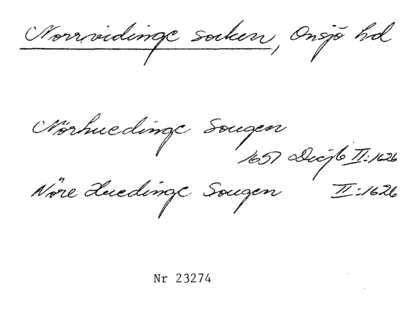 Norrvidinge socken, Onsjö hd
Nörhuedinge Sougen
1657 Decjb II:1626
Nöre Huedinge Sougen II:1626
Nr 23274